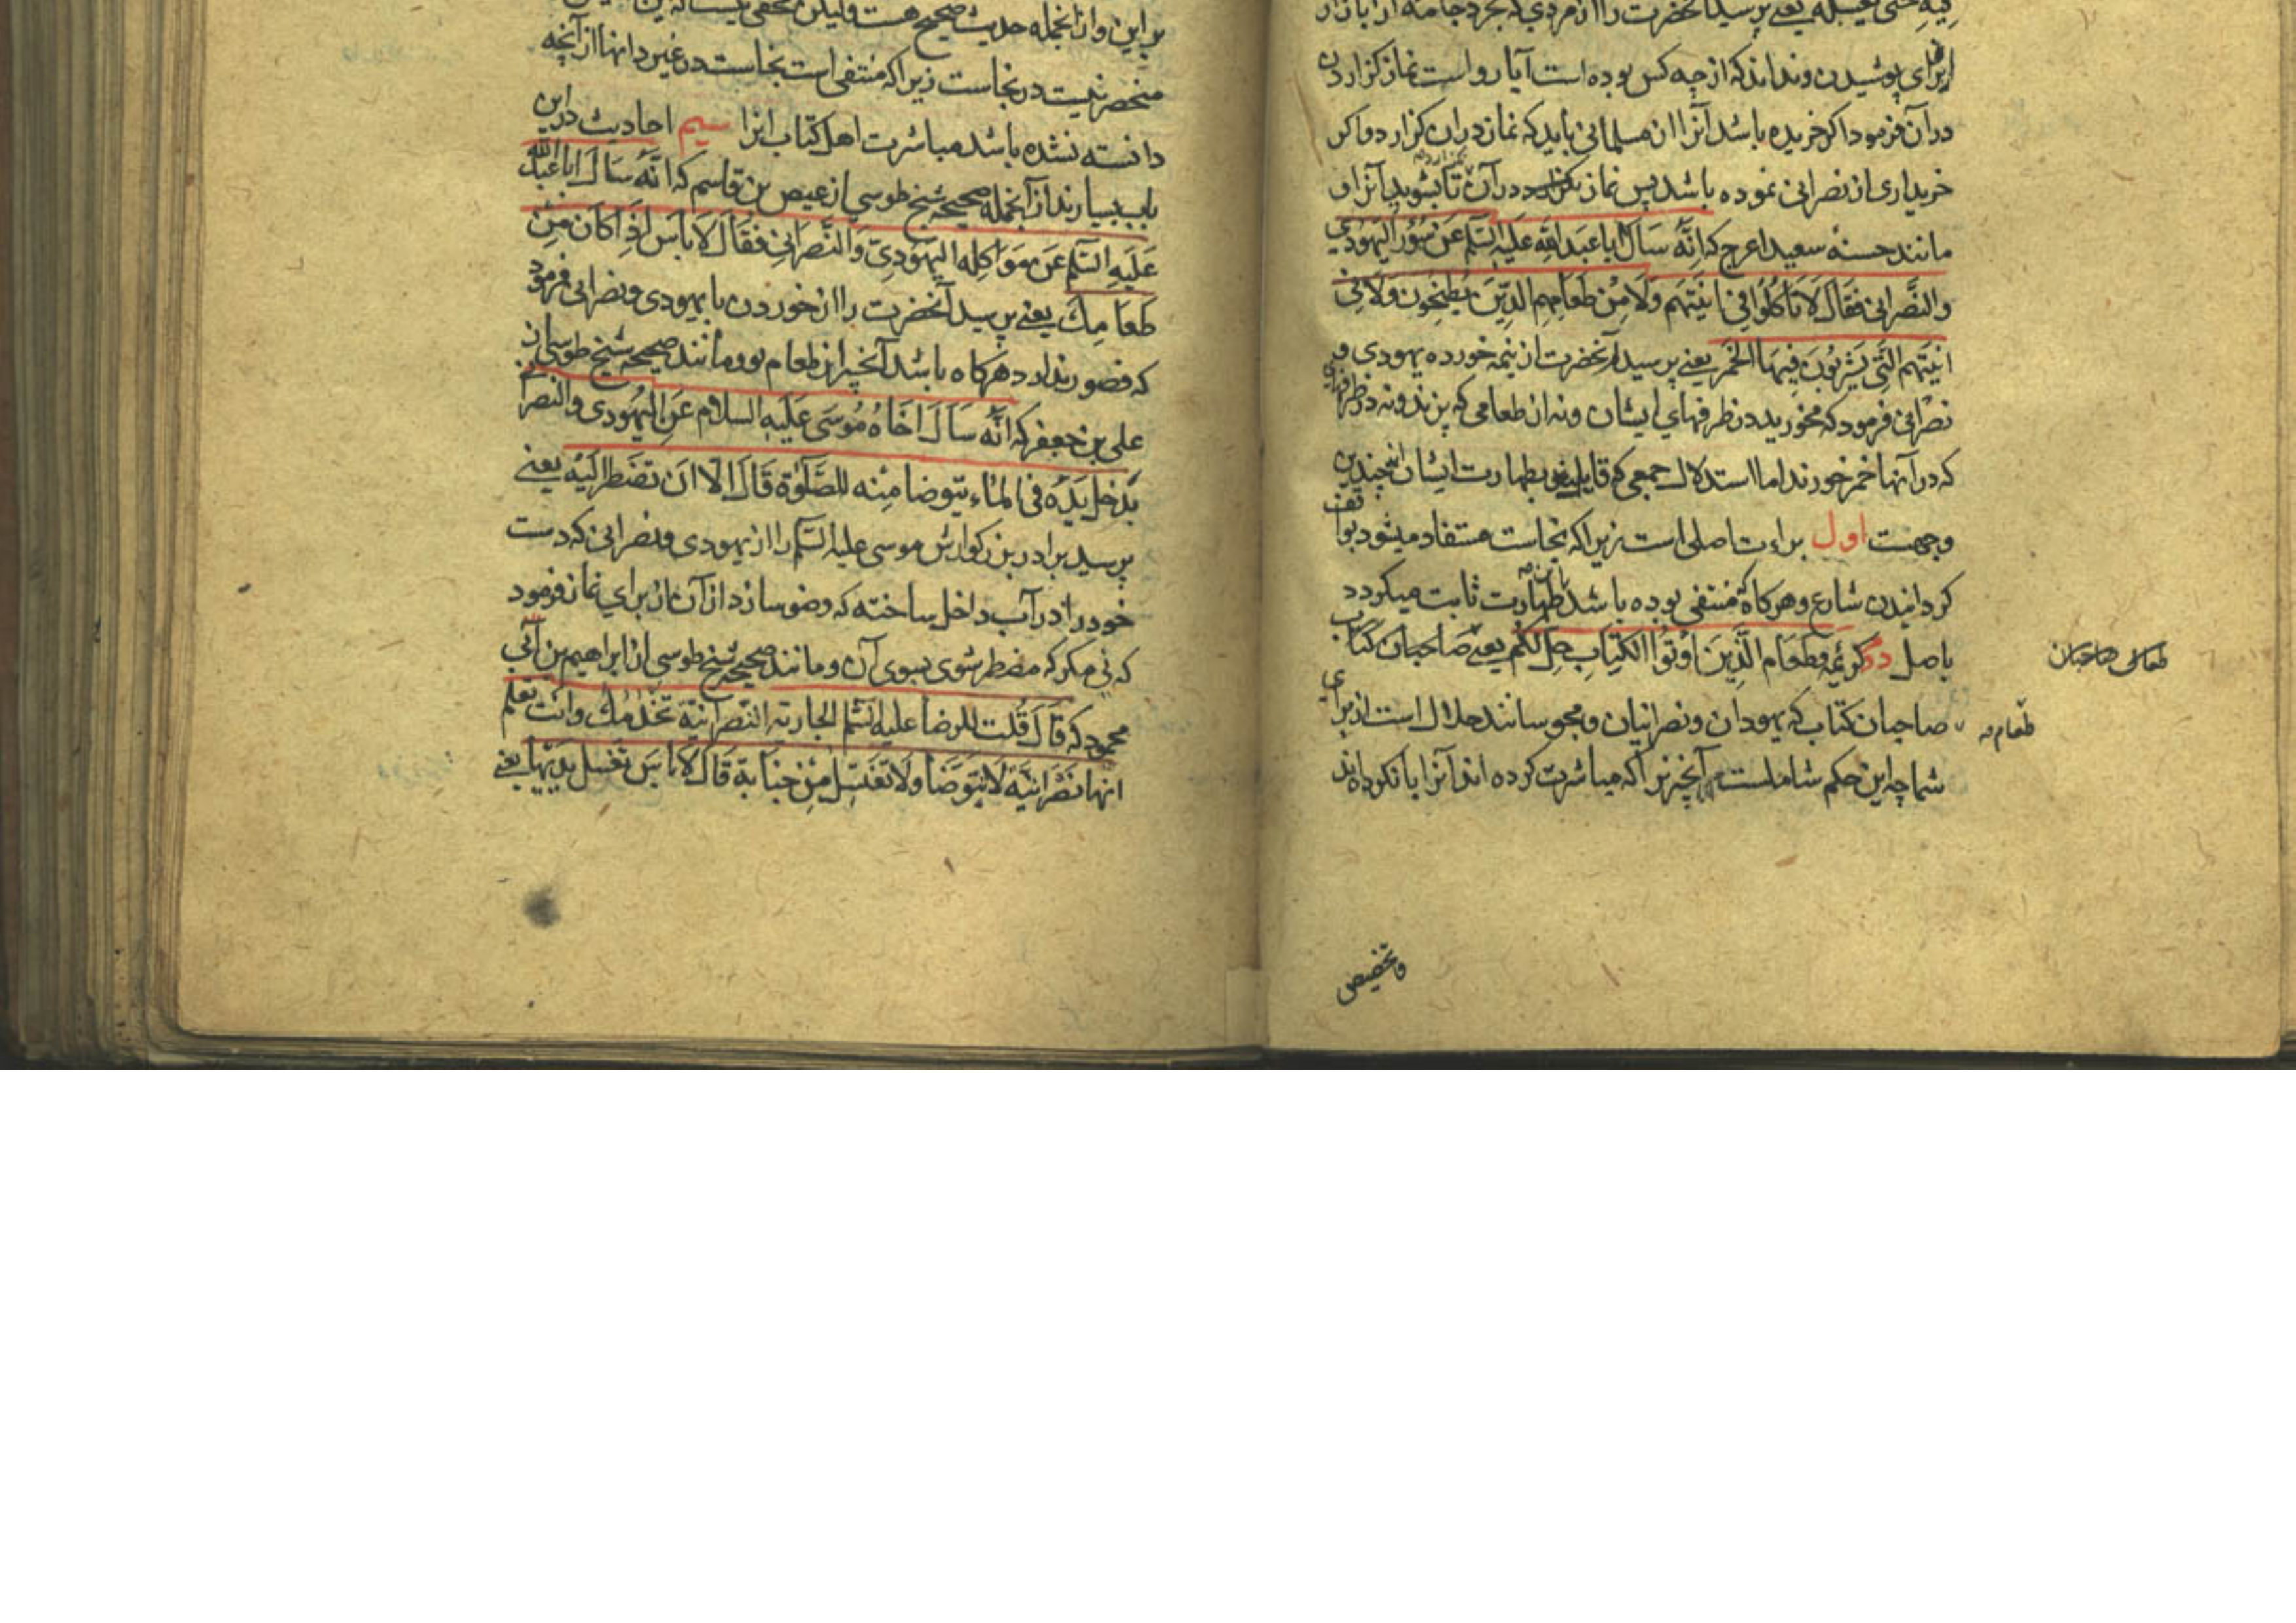 فیه حتی یغسله یعنی پرسید آنحضرت را از مردی که بخرد جامه از بازار
از برای پوشیدن و نداند که از چه کس بوده است آیا رواست نماز گزاردن
در آن فرمود اگر خریده باشد آنرا از مسلمانی باید که نماز در ان گزارد و اگر
خریداری از نصرانی نموده باشد پس نماز در آن تا بشوید آنرا و
مانند حسنه سعید اعرج که اِنَّهُ سَاَلَ ابا عَبدِ اللهِ عَلَیهِ السَّلم عَن سُؤرِ الیَهُودی
والنَّصرانی فَقالَ لا تَاکُلُوا فِی انِیَتِهِم وَلا مِن طَعامِهِم الَّذِینَ یَطبِخُون وَلا فِی
انِیَتِهِم الَّتی یَشرَبُونَ فِیهَا الخَمر یعنی پرسید آنحضرت از نیمه خورده یهودی و
نصرانی فرمود که مخورید در ظرفهای ایشان و نه از طعامی که پزند و نه در ظرفهای
که در آنها خمر خورند اما استدلال جمعی که قایل بطهارت ایشان چندین
وجهست اول براءت اصلی است زیرا که نجاست مستفاد میشود بواقف
گردانیدن شارع و هرگاه منتفی بوده باشد طهارت ثابت میگردد
باصل دو کریمه وطعام الَّذِینَ اُوتُوا الکِتابِ حِلٌّ لَکُم یعنی صاحبان کتاب
طعام صاحبان
صاحبان کتاب که یهودان و نصرانیان و مجوسانند حلال است از برای
طعام
شما چه این حکم شاملست آنچیز را که مباشرت کرده اند آنرا یا نکرده اند
وتخصیص
بر این و از آنجمله حدیث صحیح هست ولیکن مخفی نیست که این
منحصر نیست در نجاست زیرا که منتفی است نجاست در غیر دانها از آنچه
دانسته نشده باشد مباشرت اهل کتاب انرا سیم احادیث در این
باب بسیارند از آنجمله صحیحه شیخ طوسی از عیص بن قاسم که اَنَّهُ سَاَلَ ابا عَبدَ الله
عَلَیهِ السَّلم عَن مُوَاکِله الیَهُودِیّ وَالنَّصرانِی فَقَالَ لا باس اِذا کَانَ مِن
طَعامِكَ یعنی پرسید آنحضرت را از خوردن با یهودی و نصرانی فرمود
که قصور ندارد هرگاه باشد آنچیز از طعام تو و مانند صحیحه شیخ طوسی از
علی بن جعفر که انَّه سَاَلَ اَخَاهُ مُوسَی عَلَیهِ السلام عَنِ الیَهُودی والنصرانی
یدخل یَدَه فی الماء یتوضا مِنه للصَّلوٰة قَالَ لا الا ان تضطر الَیه یعنی
پرسید برادر بزرگوارش موسی علیه السّلم را از یهودی و نصرانی که دست
خود را در آب داخل ساخته که وضو سازد از آن از برای نماز فرمود
که نی مگر که مضطر شوی بسوی آن و مانند صحیحه شیخ طوسی از ابراهیم بن ابی
محمود که قَالَ قُلت للرضا علیه السَّلم الجاریه النصرانیّة تخدمك وانت تعلم
انها نَصرَانیّة لا تتوضا ولا تغتسل مِن جنابة قَالَ لا باس تغسل یدیها یعنی